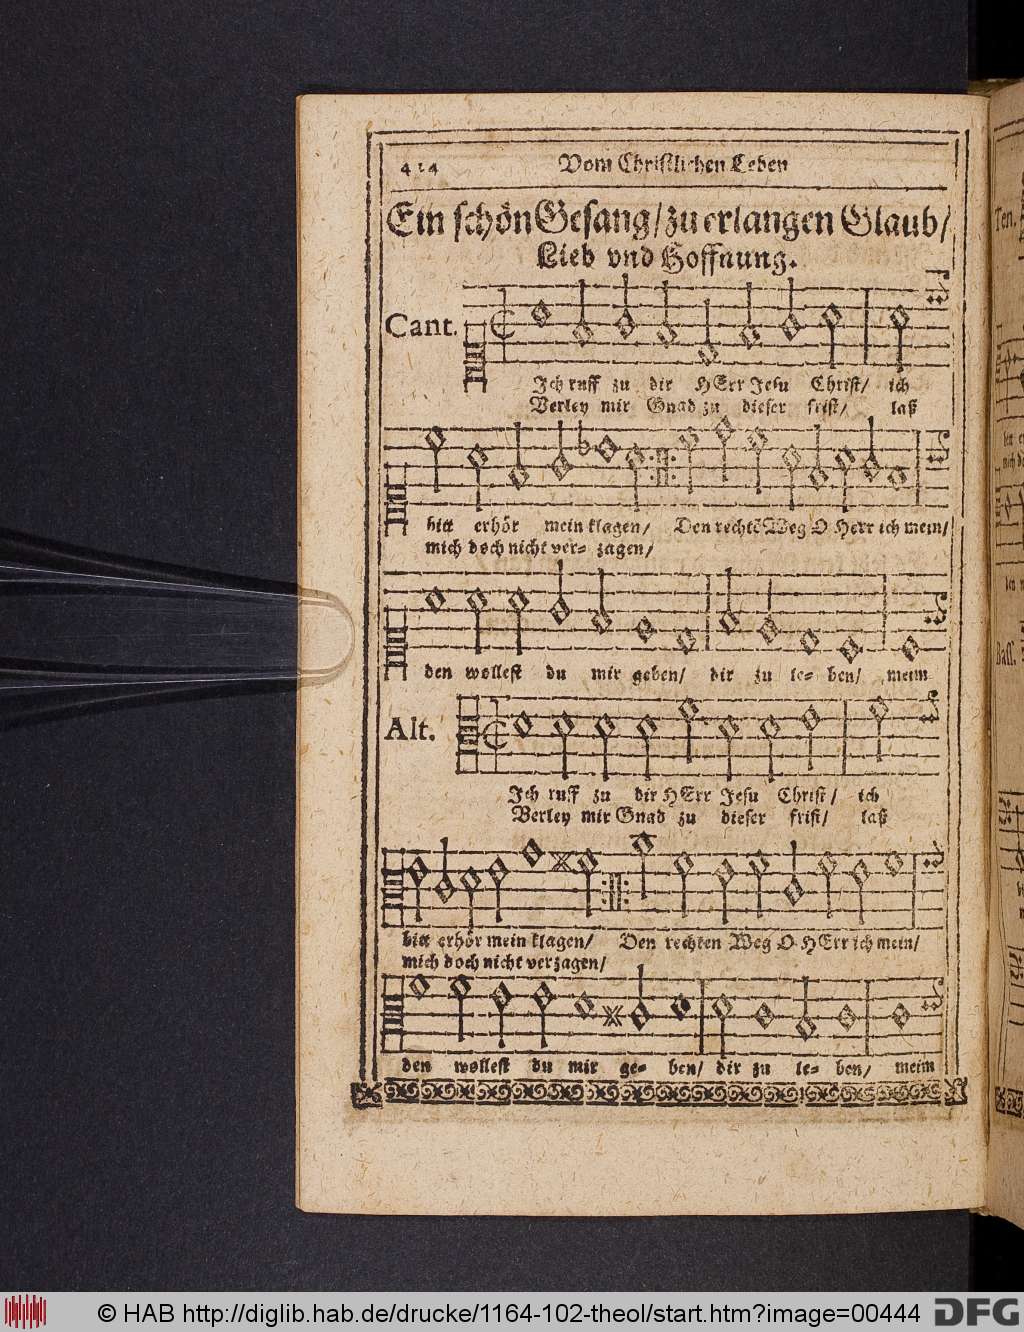 414 Vom Christlichen Leben
Ein schön Gesang/ zu erlangen Glaub/
Lieb vnd Hoffnung.
Cant.
Ich ruff zu dir HErr Jesu Christ/ ich
Verley mir Gnad zu dieser frist/ laß
bitt erhör mein klagen/ Den rechtẽ Weg O Herr ich mein/
mich doch nicht ver- zagen/
den wollest du mir geben/ dir zu le- ben/ meim
Alt.
Ich ruff zu dir HErr Jesu Christ/ ich
Verley mir Gnad zu dieser frist/ laß
bitt erhör mein klagen/ Den rechten Weg O HErr ich mein/
mich doch nicht verzagen/
den wollest du mir ge- ben/ dir zu le- ben/ meim
Ten.
Bass.
© HAB http://diglib.hab.de/drucke/1164-102-theol/start.htm?image=00444
DFG